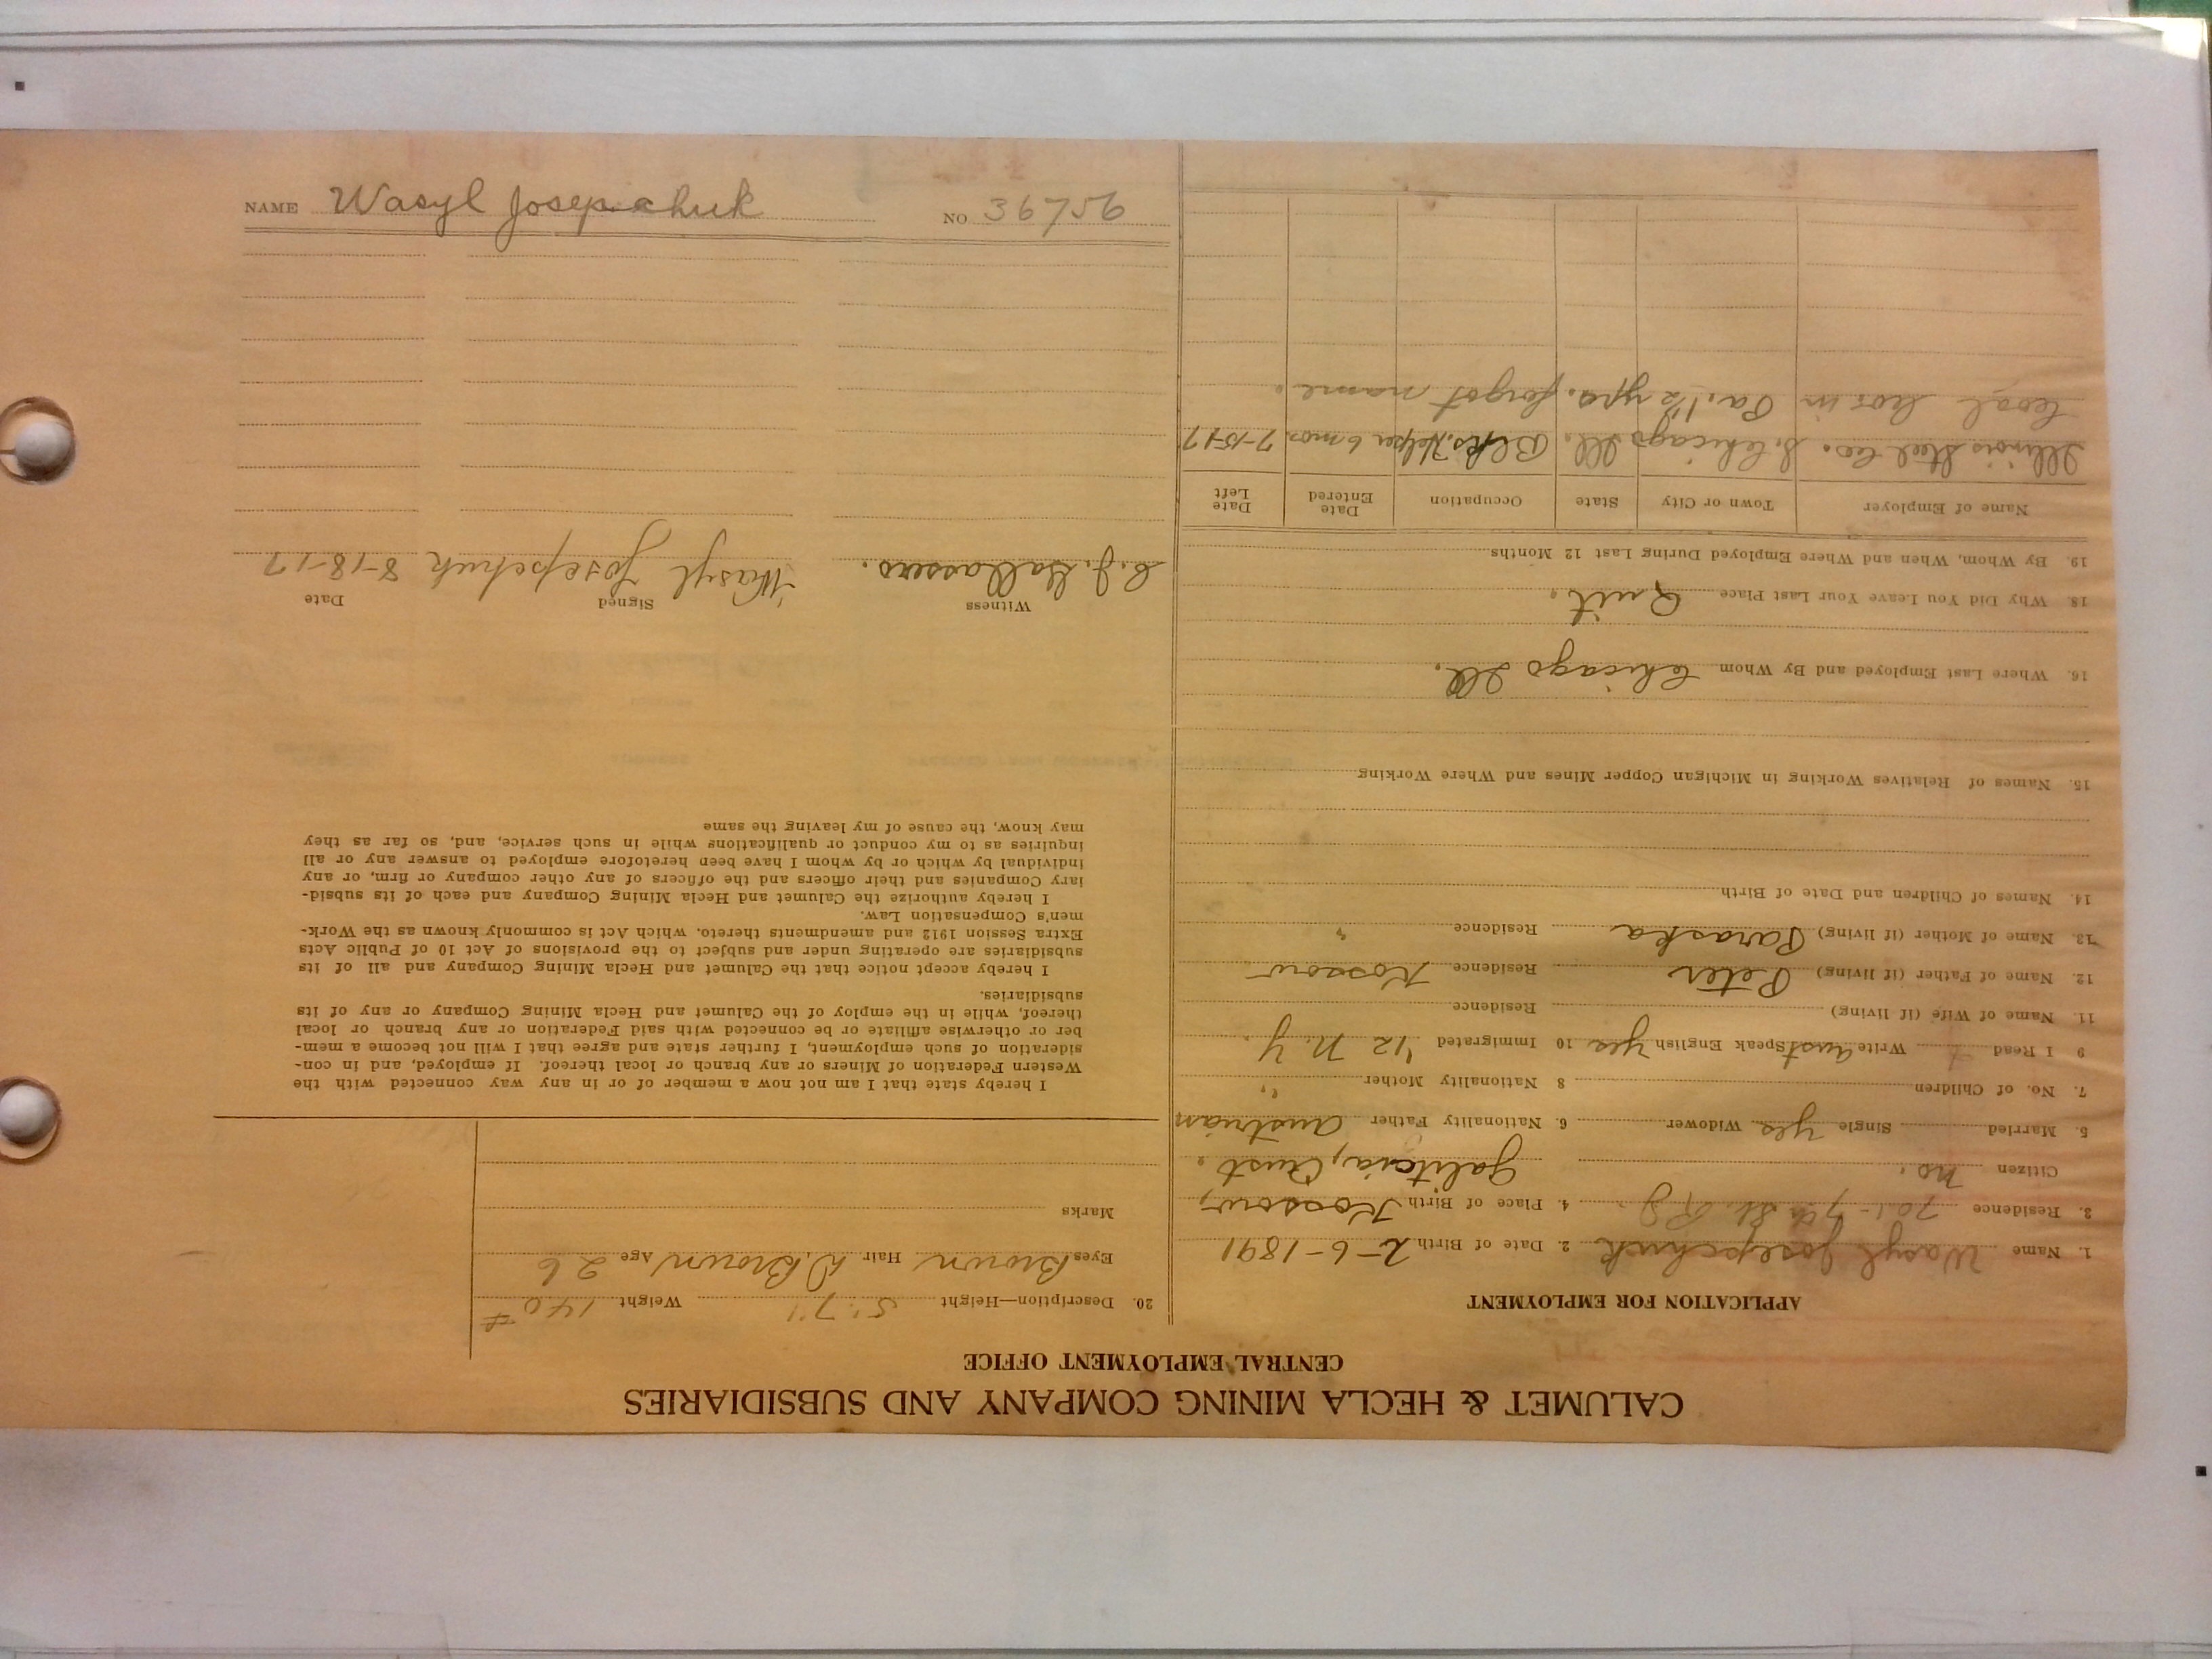 CALUMET & HECLA MINING COMPANY AND SUBSIDIARIES
CENTRAL EMPLOYMENT OFFICE
APPLICATION FOR EMPLOYMENT
1. Name Wasyl Josepchuk 2. Date of Birth 2-6-1891
3. Residence 701-7th St. 4. Place of Birth Kossow,
Citizen no. Galitcia, Aust.
5. Married Single yes Widower 6. Nationality Father Austrian
7. No. of Children 8 Nationality Mother "
9 I Read Write Aust Speak English yes 10 Immigrated '12 N.Y.
11. Name of Wife (if living) Residence
12. Name of Father (if living) Peter Residence Kossow
13. Name of Mother (if living) Paraska Residence "
14. Names of Children and Date of Birth
15. Names of Relatives Working in Michigan Copper Mines and Where Working
16. Where Last Employed and By Whom Chicago Ill.
18. Why Did You Leave Your Last Place Quit.
19. By Whom, When and Where Employed During Last 12 Months
Name of Employer Town or City State Occupation Date Entered Date Left
Illinois Steel Co. S. Chicago Ill. Blks. Helper 6 mos. 7-15-17
Coal Co. in Pa. 1½ yrs. forgot name.
20. Description—Height 5'7" Weight 140#
Eyes Brown Hair D. Brown Age 26
Marks
I hereby state that I am not now a member of or in any way connected with the
Western Federation of Miners or any branch or local thereof. If employed, and in con-
sideration of such employment, I further state and agree that I will not become a mem-
ber or otherwise affiliate or be connected with said Federation or any branch or local
thereof, while in the employ of the Calumet and Hecla Mining Company or any of its
subsidiaries.
I hereby accept notice that the Calumet and Hecla Mining Company and all of its
subsidiaries are operating under and subject to the provisions of Act 10 of Public Acts
Extra Session 1912 and amendments thereto, which Act is commonly known as the Work-
men's Compensation Law.
I hereby authorize the Calumet and Hecla Mining Company and each of its subsid-
iary Companies and their officers and the officers of any other company or firm, or any
individual by which or by whom I have been heretofore employed to answer any or all
inquiries as to my conduct or qualifications while in such service, and, so far as they
may know, the cause of my leaving the same
Witness Signed Date
Wasyl Josepchuk 8-18-17
NAME Wasyl Josepchuk NO 36756